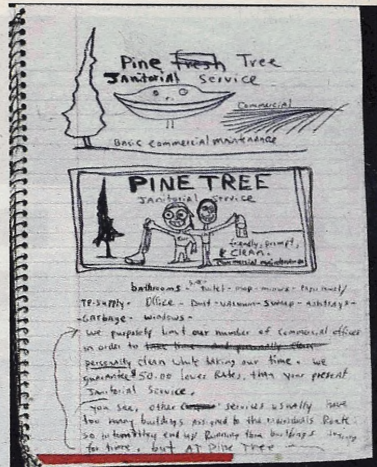 Pine Fresh Tree
Janitorial Service
Commercial
Basic commercial maintenance
PINE TREE
Janitorial Service
friendly, prompt,
& CLEAN.
Commercial maintenance
bathrooms toilet - mop - mirrors -
TP-Supply - Office - Dust - vacuum - Sweep - Ashtrays -
- Garbage - windows -
We purposely limit our number of commercial offices
in order to take time and personally
personally clean while taking our time. we
guarantee $50.00 lower Rates, than your present
Janitorial Service.
you see, other services usually have
too many buildings assigned to the individuals Route
so they end up Running from buildings
for time, but AT Pine Tree -